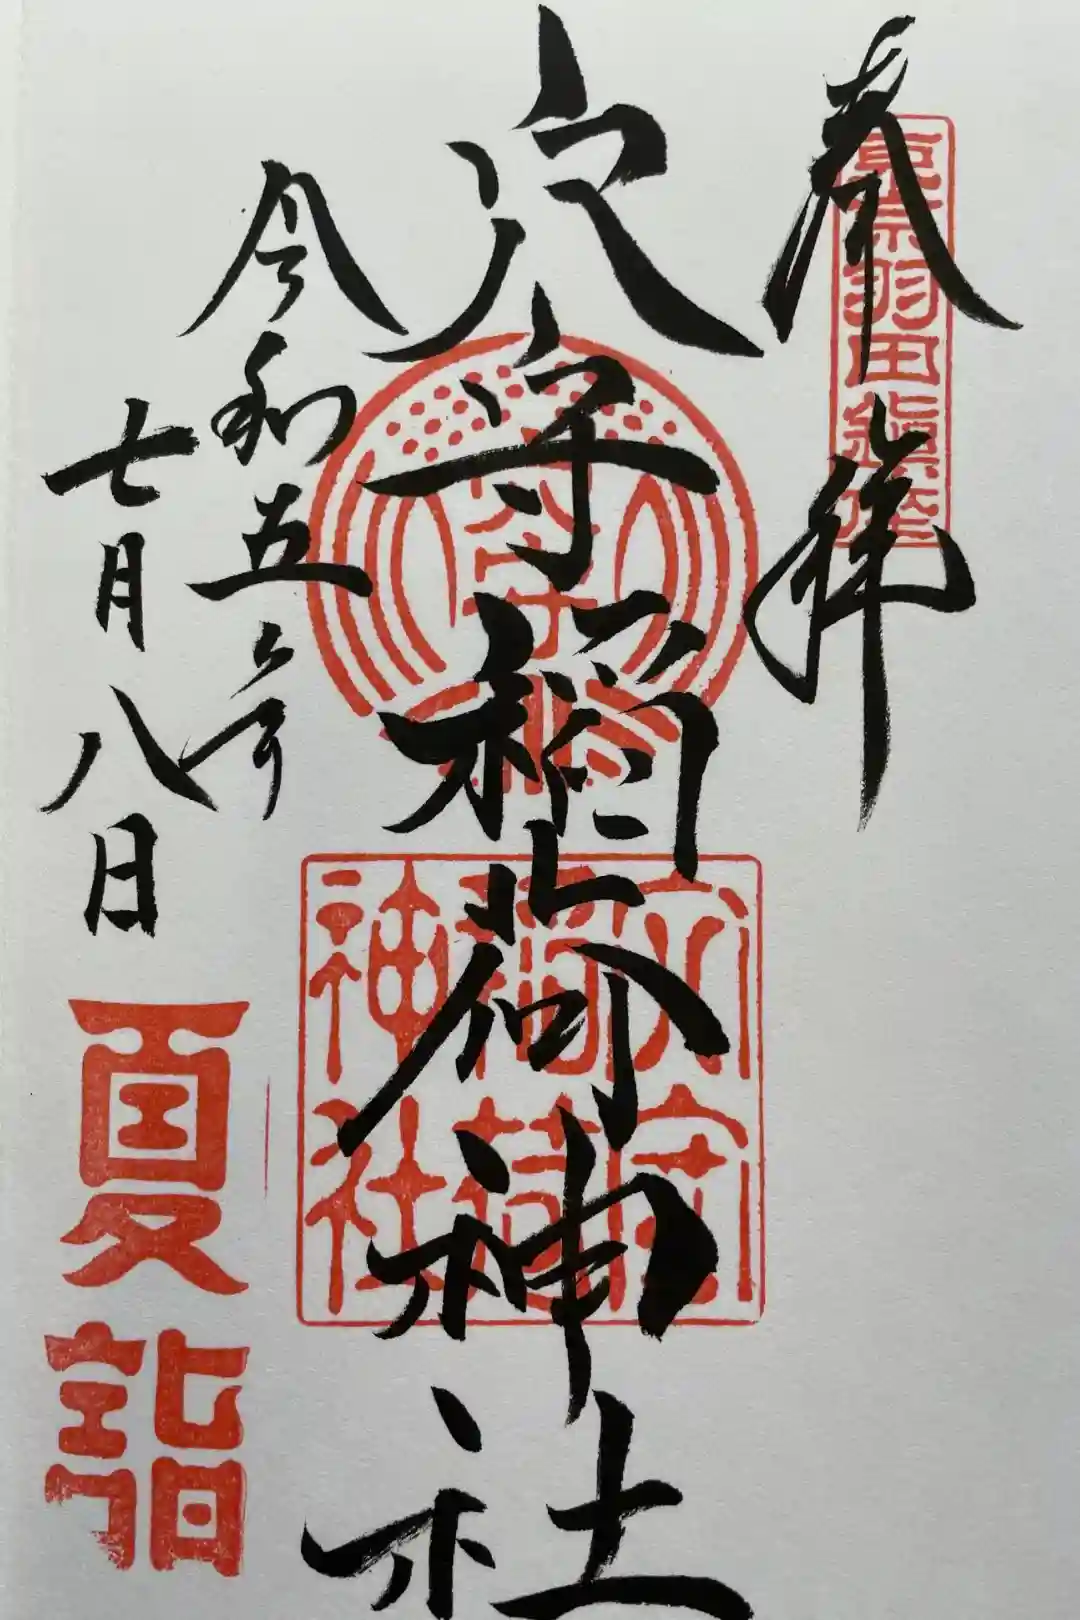 奉拝
東京羽田鎮座
穴守稲荷神社
穴守
稲荷
神社
令和五年
七月八日
夏詣